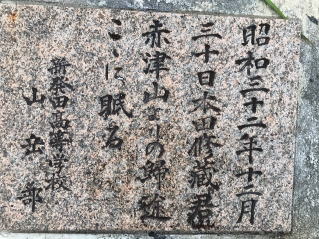 昭和三十二年十二月
三十日本田修蔵君
赤津山よりの帰途
こゝに眠る
新発田高等学校
山岳部